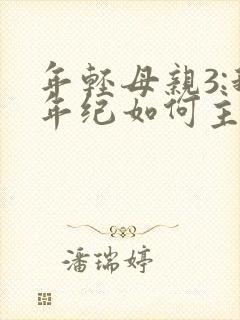 年轻母親3:
年纪如何主
潘瑞婷